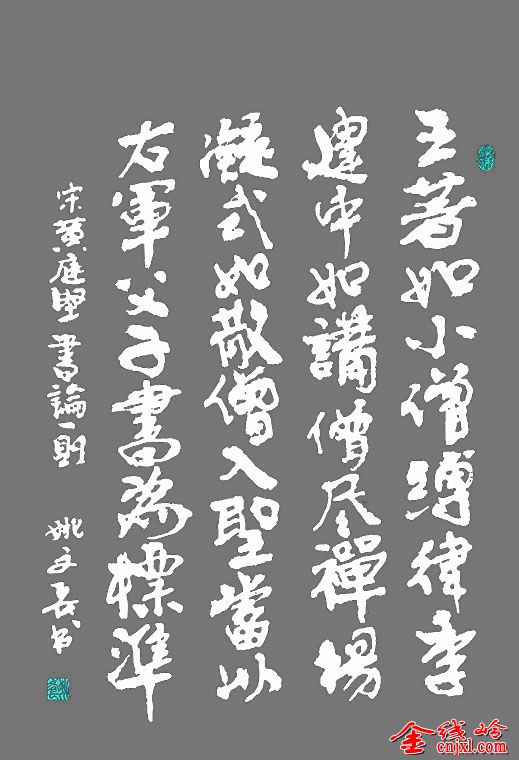 王著如小僧縛律李
建中如講僧参禪楊
凝式如散僧入聖當以
右軍父子書為標準
宋黄庭堅書論一則 姚文书
金线岭
cnjxl.com